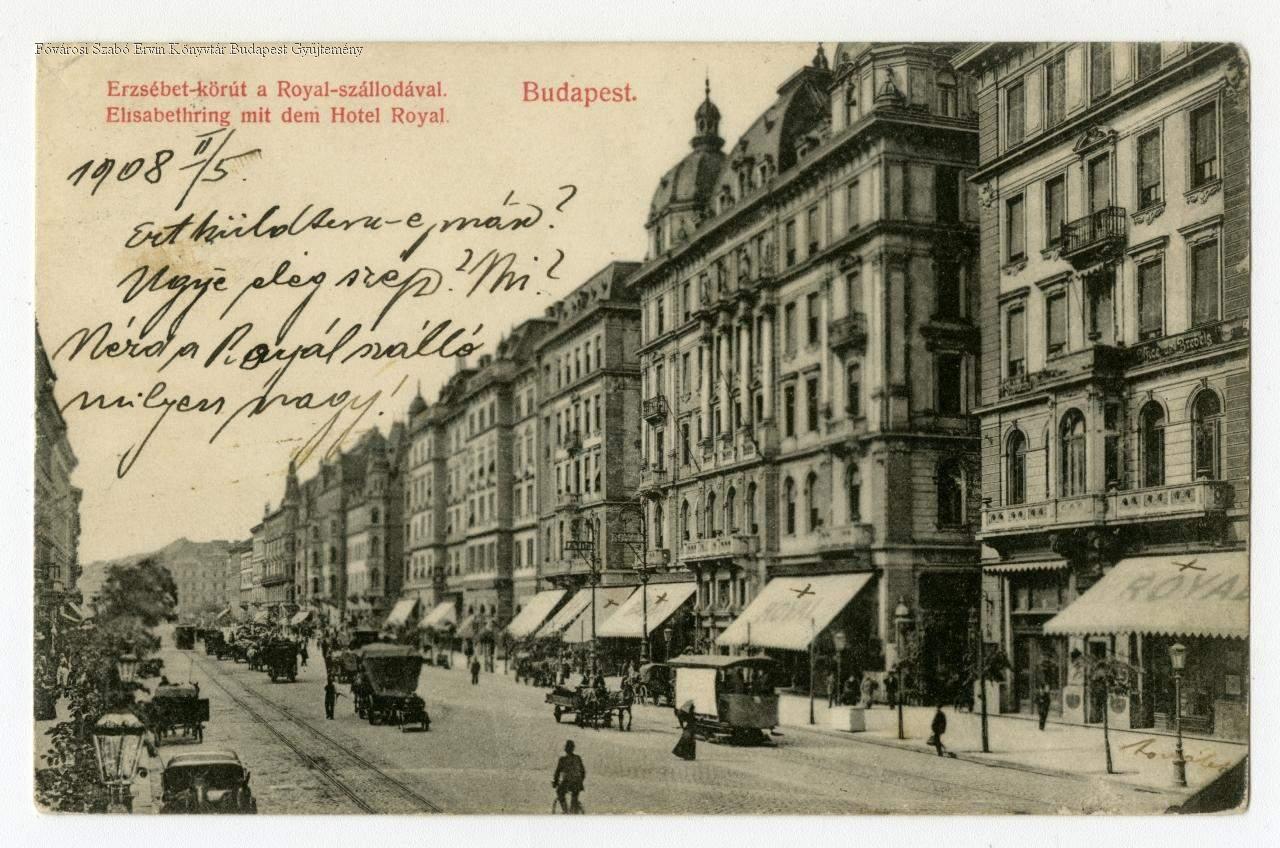 Fővárosi Szabó Ervin Könyvtár Budapest Gyűjtemény
Erzsébet-körút a Royal-szállodával.
Elisabethring mit dem Hotel Royal.
Budapest.
1908 II/5.
Ezt küldtem-e már?
Ugye elég szép? Mi?
Nézd a Royál szálló
milyen nagy!
ROYAL
ROYAL